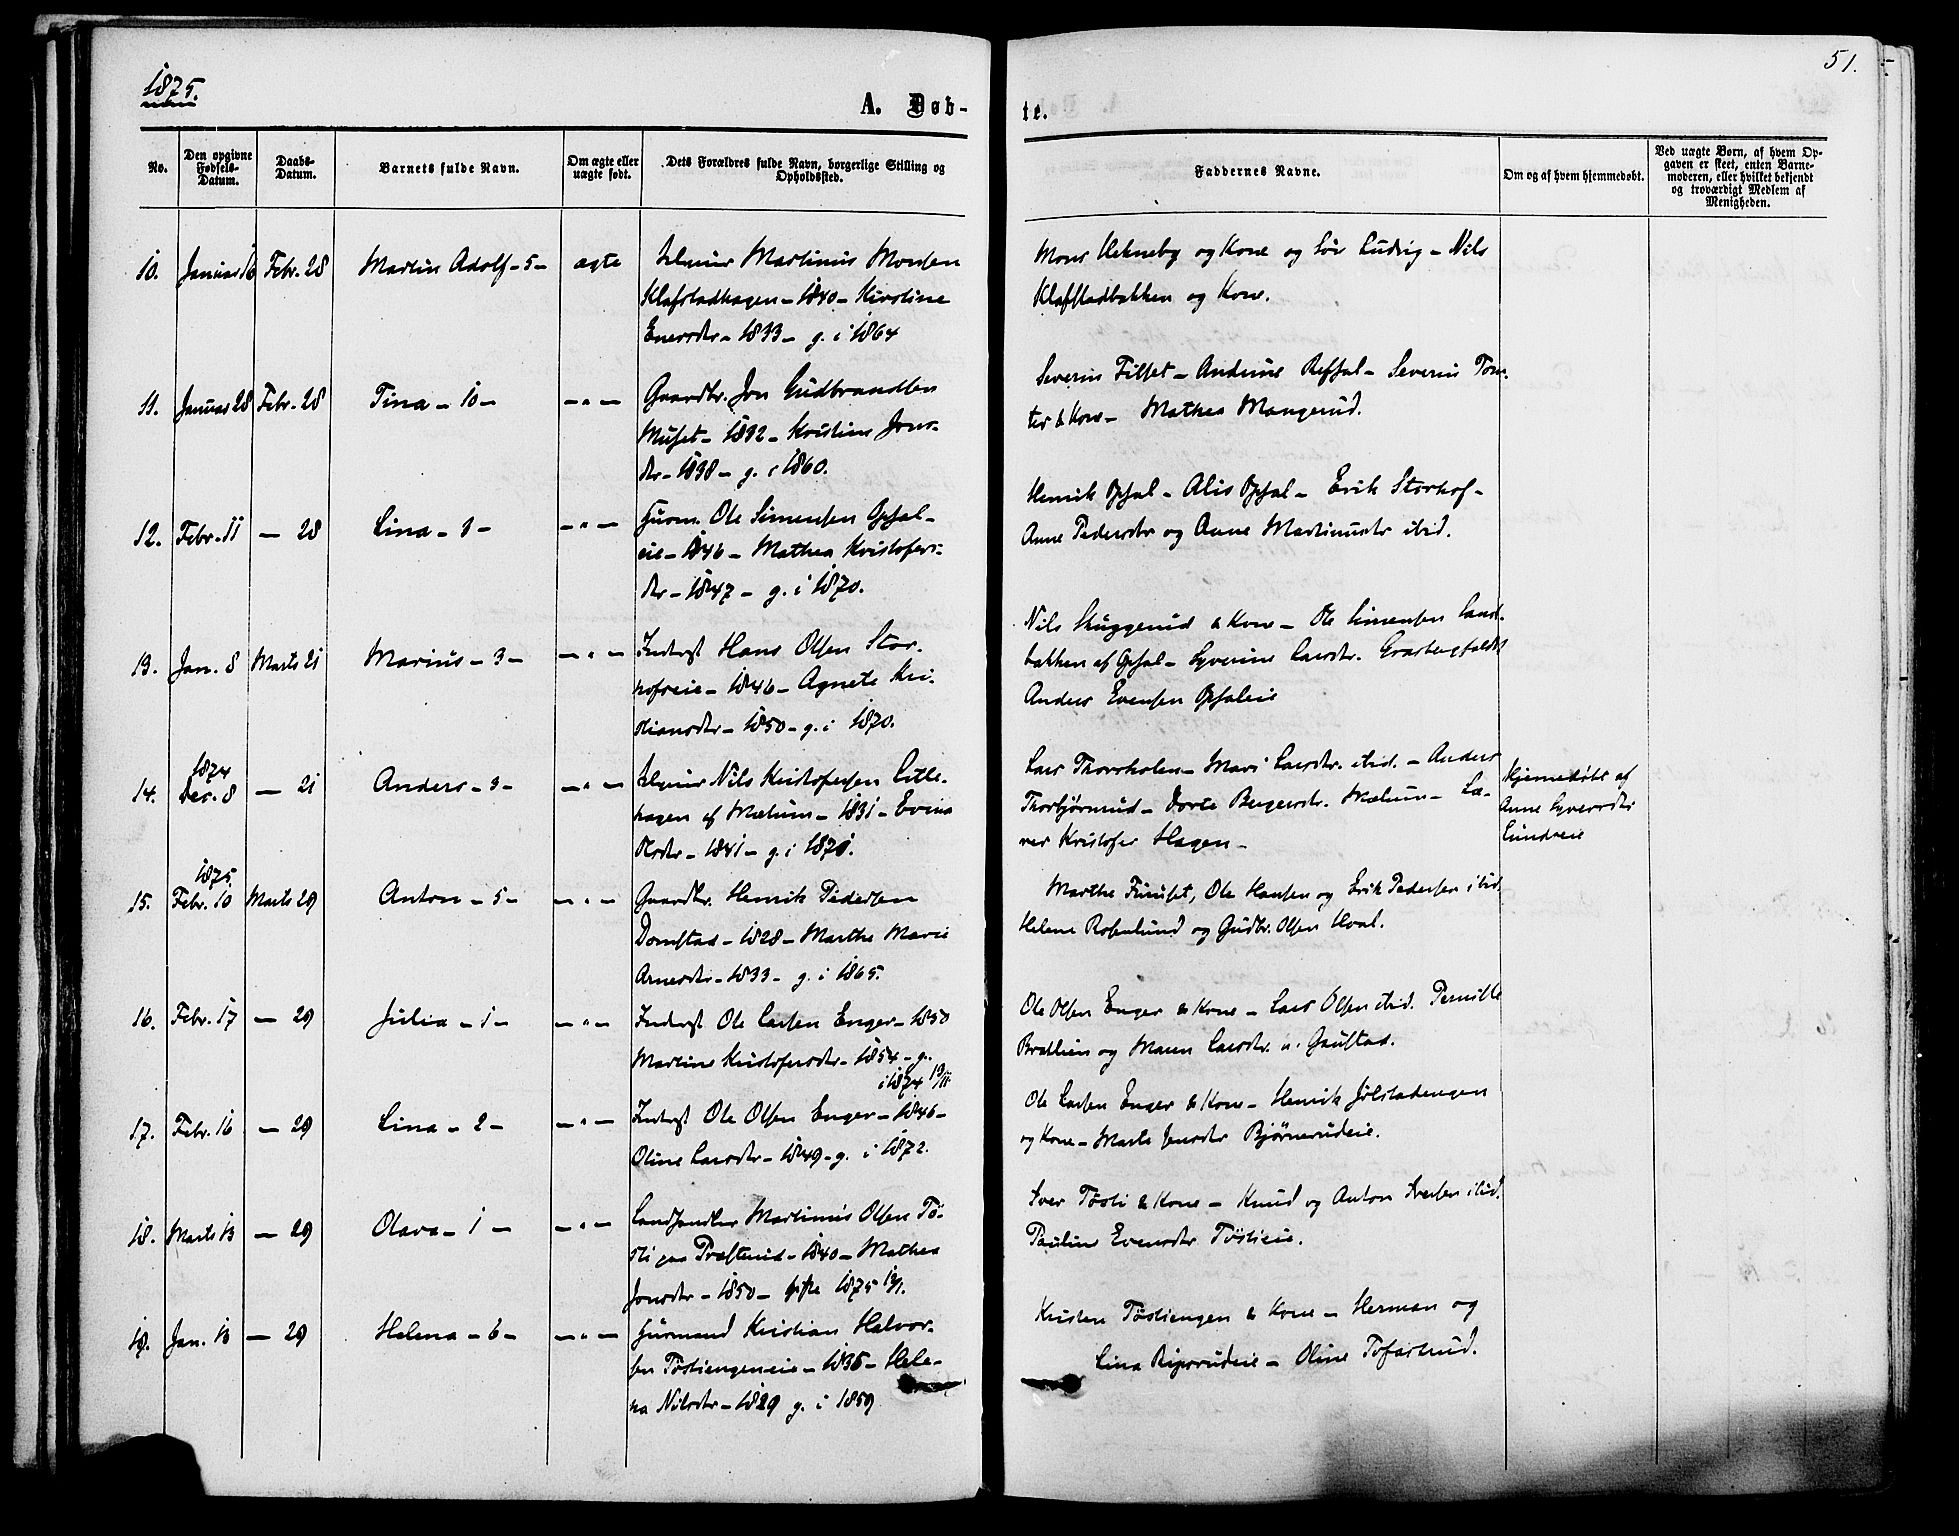 1875.
51.
A. Døb-
te.
No.
Den opgivne
Fødsels-
Datum.
Daabs-
Datum.
Barnets fulde Navn.
Om ægte eller
uægte født.
Dets Forældres fulde Navn, borgerlige Stilling og
Opholdssted.
Faddernes Navne.
Om og af hvem hjemmedøbt.
Ved uægte Børn, af hvem Op-
gaven er skeet, enten Barne-
moderen, eller hvilket bekjendt
og troværdigt Medlem af
Menigheden.
10. Januar 16 Febr. 28 Martin Adolf - 5 - ægte Martinus Monsen
Klafstadhagen - 1840 - Kirstine
Enersdtr - 1833 - g. i 1864
Mons Hekneby og Kone og Søn Ludvig - Nils
Klafstadbakken og Kone.
11. Januar 28 Febr. 28 Tina - 10 - - " - Gaardbr. Jon Gudbrandsen
Muset - 1832 - Kristine Jons-
dtr - 1838 - g. i 1860.
Severin Filset - Andrine Refsal - Severin Tom-
ter & Kone - Mathea Mangerud.
12. Febr. 11 - 28 Lina - 1 - - " - Husm. Ole Simensen Opsal-
eie - 1846 - Mathea Kristofers-
dtr - 1847 - g. i 1870.
Henrik Opsal - Alis Opsal - Erik Storhof -
Anne Pedersdtr og Anne Martinusdtr ibid.
13. Jan. 8 Marts 21 Marius - 3 - - " - Inderst Hans Olsen Stor-
hofseie - 1846 - Agnete Kri-
stiansdtr - 1850 - g. i 1870.
Nils Skuggerud & Kone - Ole Simensen Sand-
bakken af Opsal - Syverine Larsdtr.
Anders Evensen Opsaleie
14. 1874
Dec. 8 - 21 Anders - 3 - - " - Nils Kristofersen Lille-
hagen af Mælum - 1831 - Evina
Olsdtr - 1841 - g. i 1870.
Lars Thorsholen - Mari Larsdtr. ibid. - Anders
Thorbjørnrud - Dorte Bergersdtr. Mælum - Læ-
rer Kristofer Hagen -
Hjemmedøbt af
Anne Syversdtr
Lundseie
15. 1875.
Febr. 10 Marts 29 Anton - 5 - - " - Gaardbr. Henrik Pedersen
Domstad - 1828 - Marthe Marie
Arnesdtr - 1833 - g. i 1865.
Marthe Furuset, Ole Hansen og Erik Pedersen ibid.
Helene Rosenlund og Gudbr. Olsen Hval.
16. Febr. 17 - 29 Julia - 1 - - " - Inderst Ole Larsen Enger - 1850
Martine Kristofersdtr - 1854 - g.
i 1874 19/11
Ole Olsen Enger & Kone - Lars Olsen ibid. Pernille
Bratlien og Maren Larsdtr. n. Gaustad.
17. Febr. 16 - 29 Lina - 2 - - " - Inderst Ole Olsen Enger - 1846 -
Oline Larsdtr - 1849 - g. i 1872.
Ole Larsen Enger & Kone - Henrik Jølstadengen
og Kone - Marte Jensdtr Bjørnerudeie.
18. Marts 13 - 29 Olava - 1 - - " - Landhandler Martinus Olsen Tø-
sti paa Præsterud - 1840 - Mathea
Jonsdtr - 1850 - 1875
Iver Tøsti & Kone - Knud og Anton Iversen ibid.
Pauline Evensdtr Tøstieie.
19. Jan. 13 - 29 Helena - 6 - - " - Husmand Kristian Halvor-
sen Tøstiengeneie - 1835 - Hele-
na Nilsdtr - 1829 g. i 1859
Kristen Tøstiengen & Kone - Herman og
Lina Ripsrudeie - Oline Tofastrud.